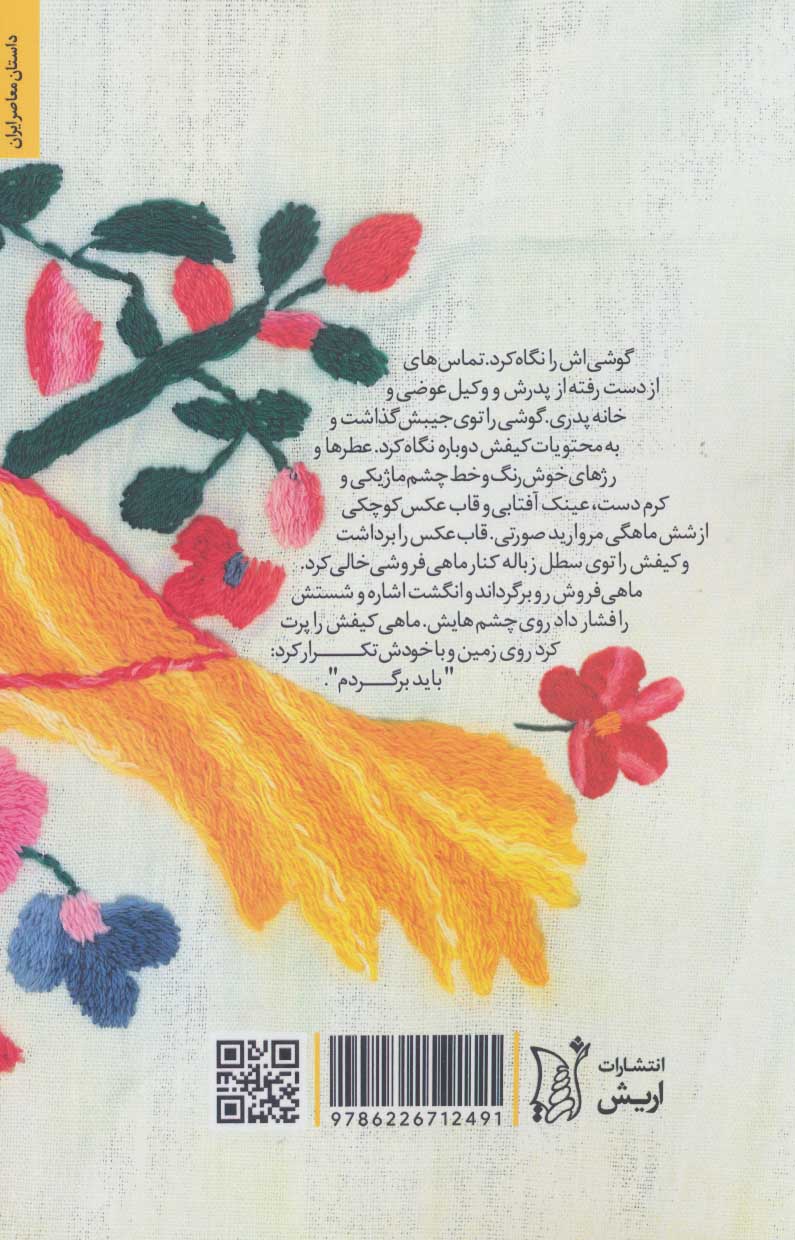 داستان معاصر ایران
گوشی‌اش را نگاه کرد. تماس‌های
از دست رفته از پدرش و وکیل عوضی و
خانه پدری. گوشی را توی جیبش گذاشت و
به محتویات کیفش دوباره نگاه کرد. عطرها و
رژهای خوش‌رنگ و خط چشم ماژیکی و
کرم دست، عینک آفتابی و قاب عکس کوچکی
از شش ماهگی مروارید صورتی. قاب عکس را برداشت
و کیفش را توی سطل زباله کنار ماهی فروشی خالی کرد.
ماهی‌فروش رو برگرداند و انگشت اشاره و شستش
را فشار داد روی چشم‌هایش. ماهی کیفش را پرت
کرد روی زمین و با خودش تکـــــرار کرد:
"باید برگـــــردم".
انتشارات
اریش
9786226712491